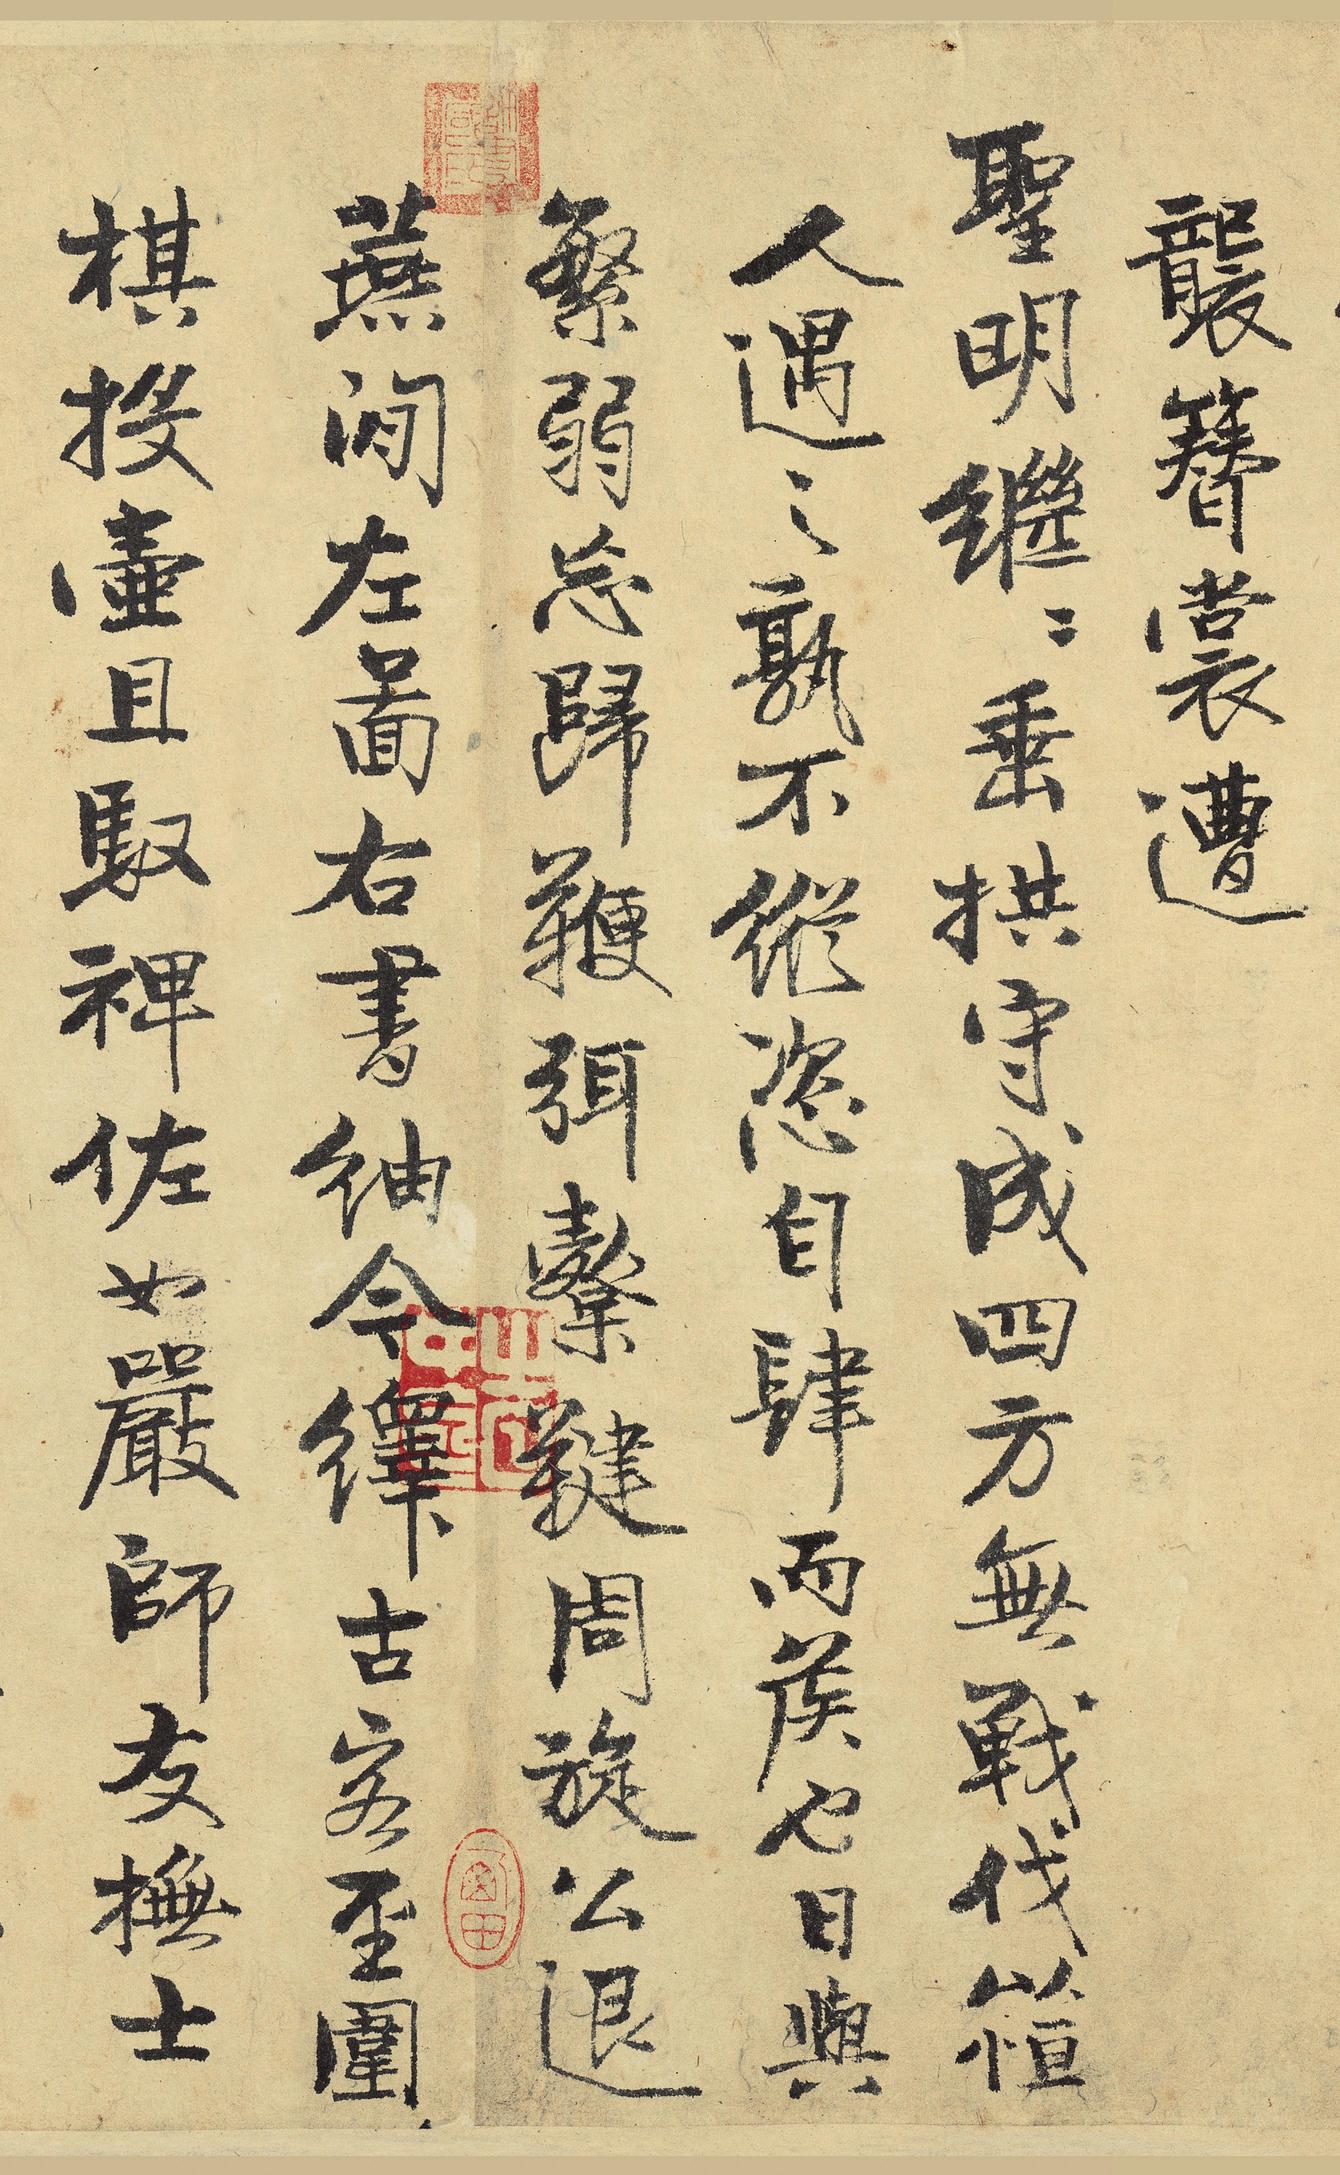 襲簪裳遭
聖明繼〻垂拱守成四方無戰伐蓋
人遇之孰不縱恣自肆而侯也日與
繁弱忘歸鞬弭櫜鞬周旋公退
燕閒左圖右書紬今繹古客至圍
棋投壺且馭裨佐如嚴師友撫士